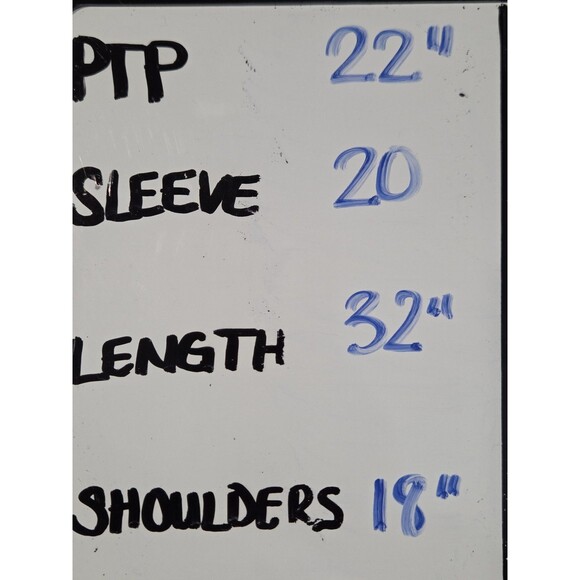 PTP 22"
SLEEVE 20
LENGTH 32"
SHOULDERS 18"